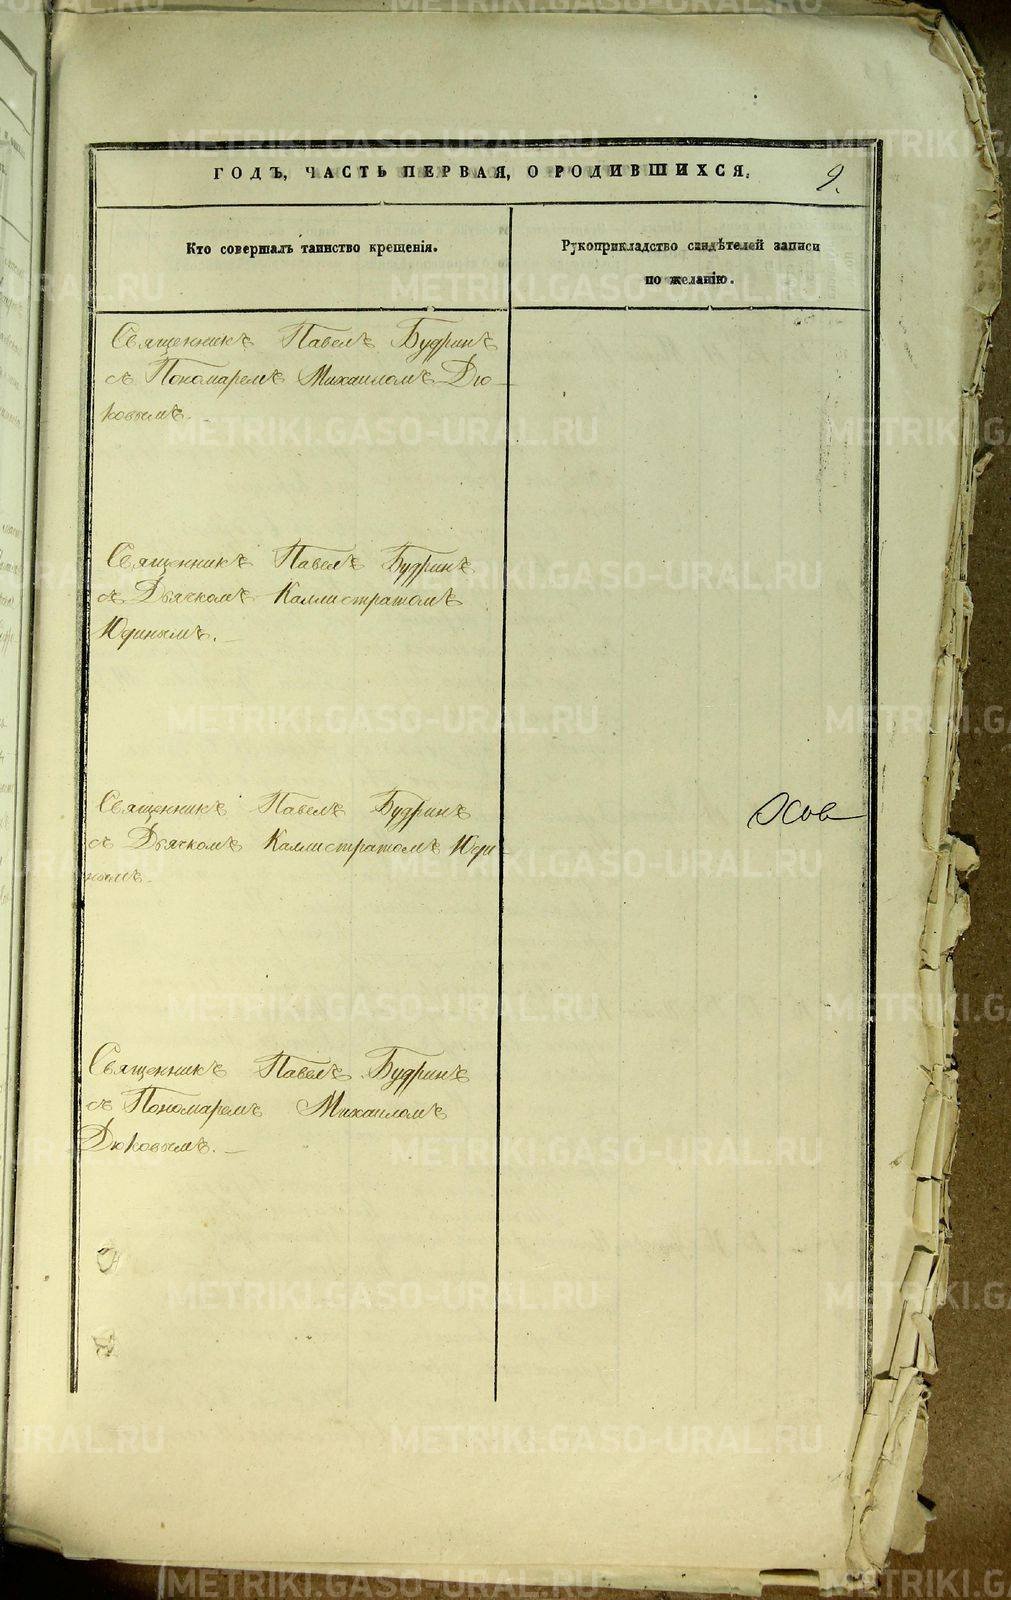 ГОДЪ, ЧАСТЬ ПЕРВАЯ, О РОДИВШИХСЯ.
9.
Кто совершалъ таинство крещенія.
Рукоприкладство свидѣтелей записи
по желанію.
Священникъ Павелъ Будринъ
съ Пономаремъ Михаиломъ Дю-
ковымъ.
Священникъ Павелъ Будринъ
съ Дьячкомъ Каллистратомъ
Юдинымъ. –
Священникъ Павелъ Будринъ
съ Дьячкомъ Каллистратомъ Юди-
нымъ.
Священникъ Павелъ Будринъ
съ Пономаремъ Михаиломъ
Дюковымъ. –
METRIKI.GASO-URAL.RU